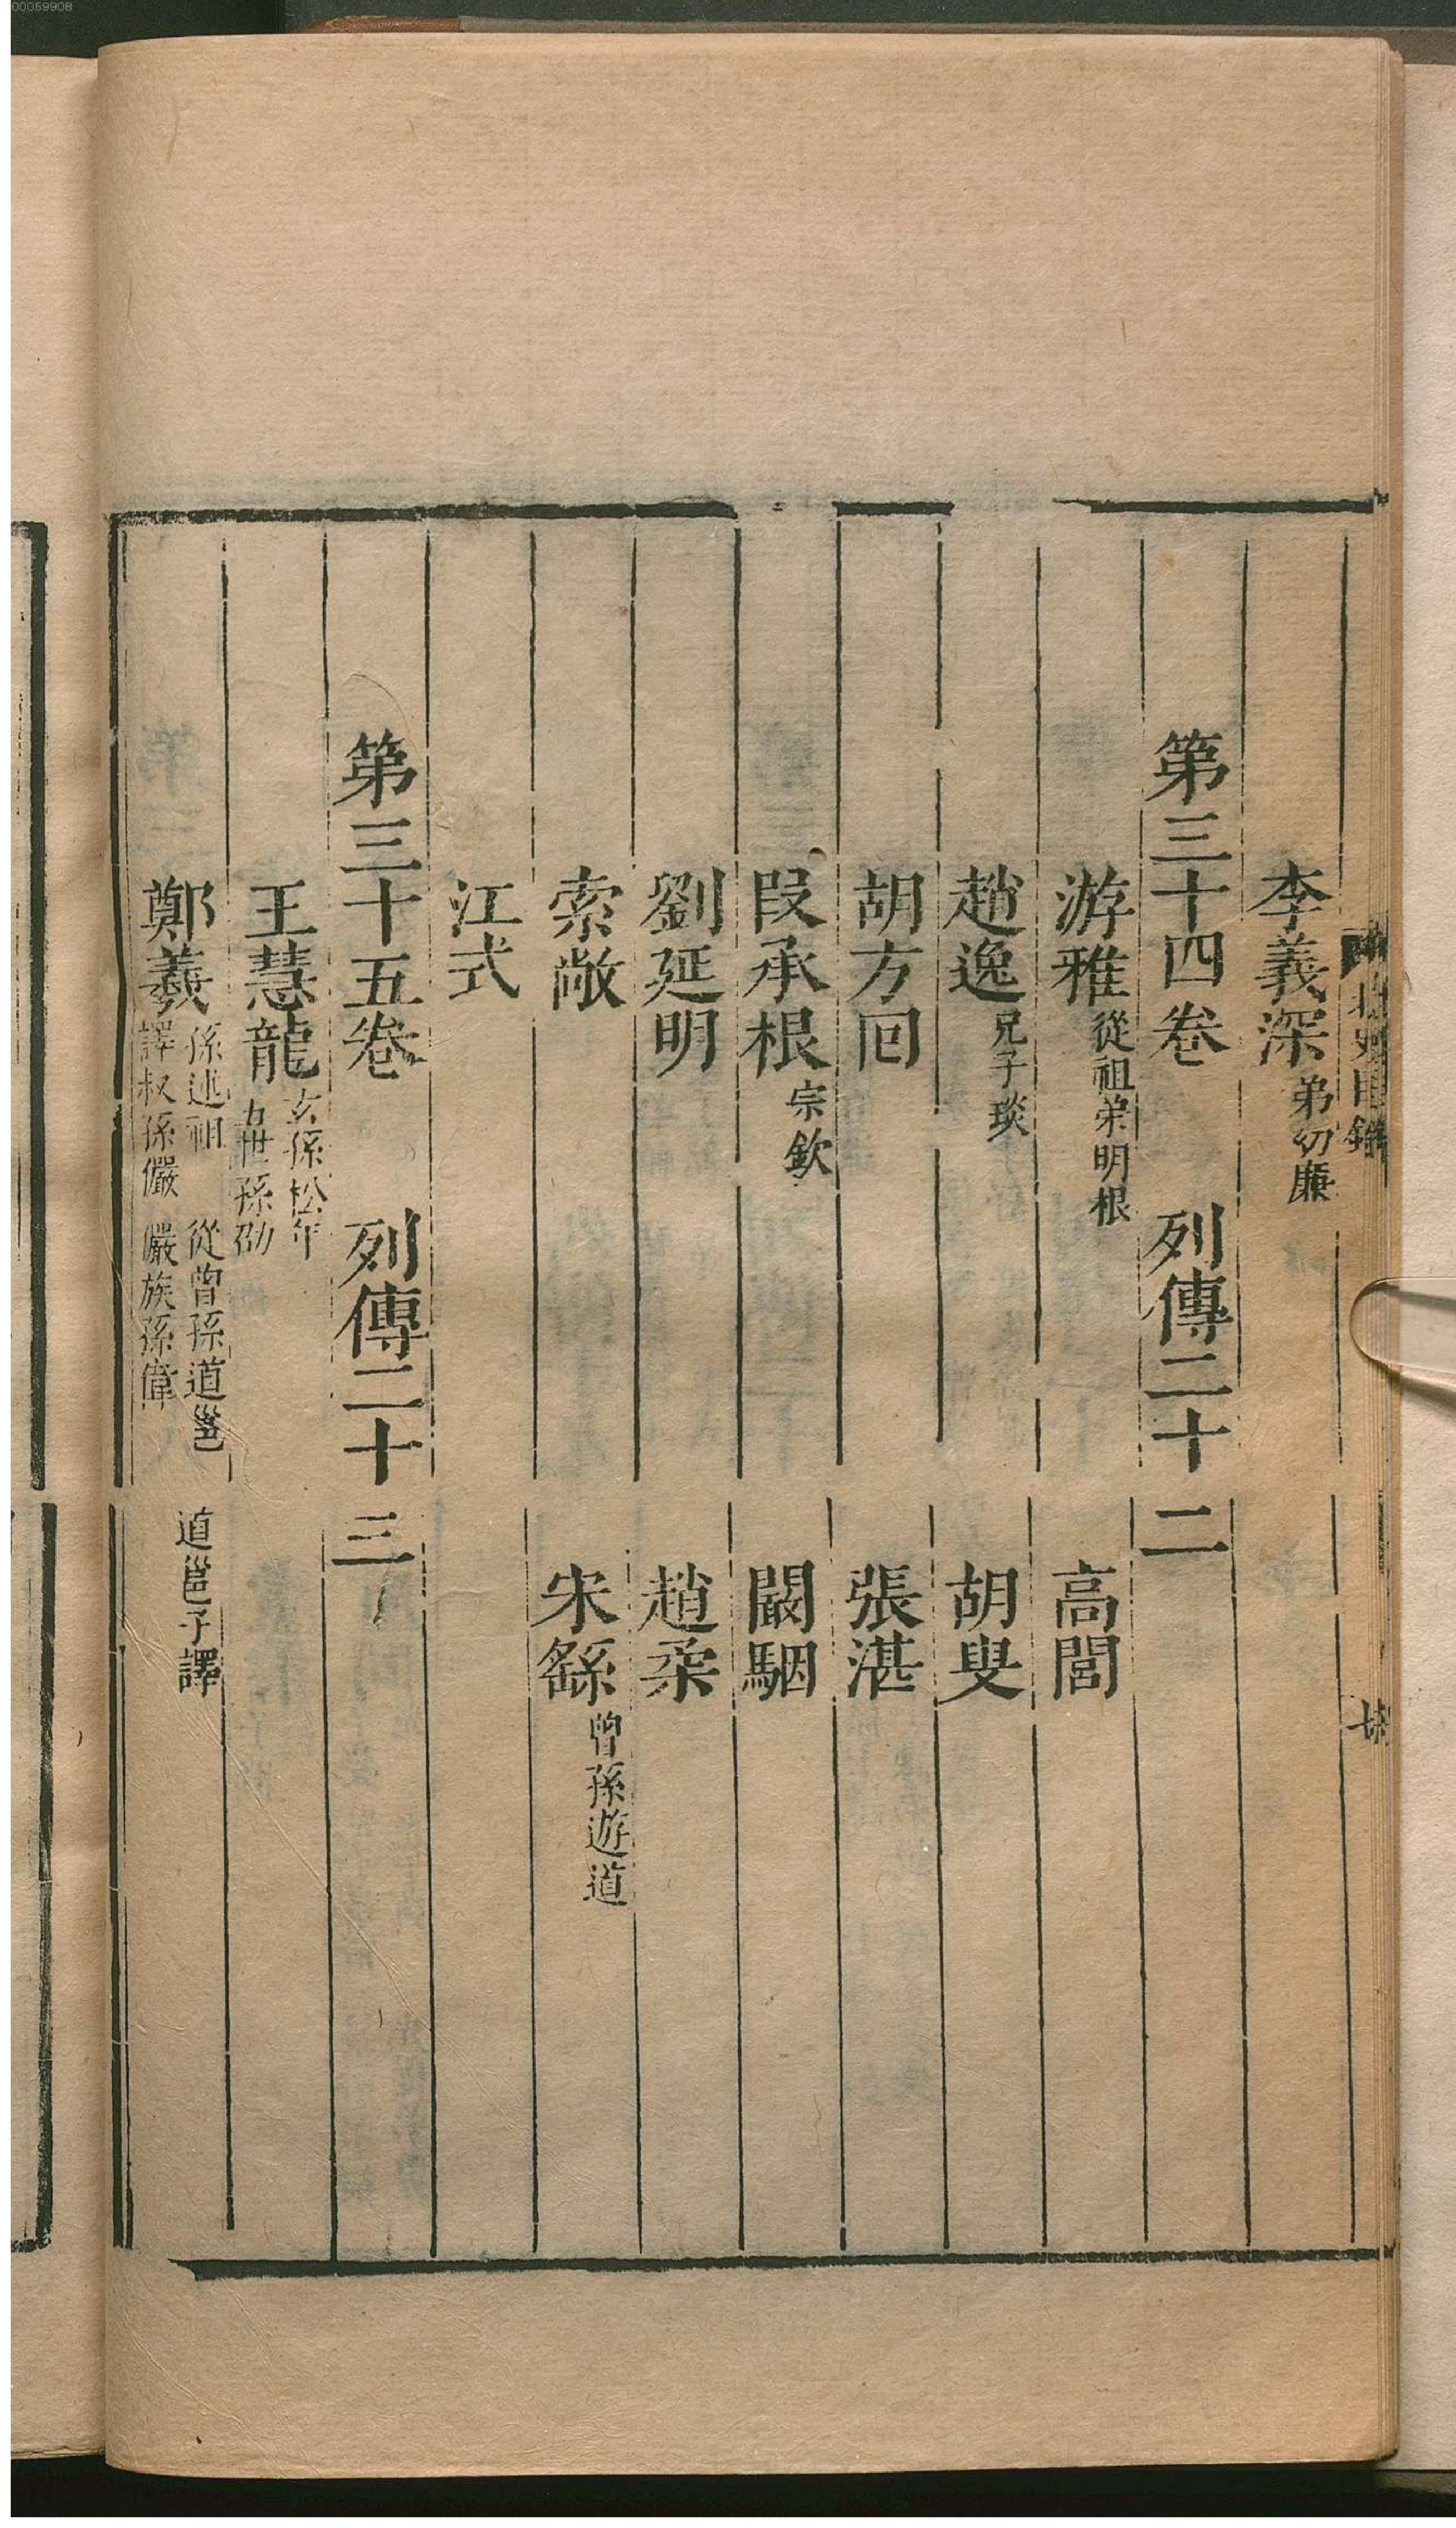 00059908
北史目錄
李義深弟幼廉
第三十四卷 列傳二十二
游雅從祖弟明根 高閭
趙逸兄子琰 胡叟
胡方回 張湛
段承根宗欽 闞駰
劉延明 趙柔
索敞 宋繇曾孫遊道
江式
第三十五卷 列傳二十三
王慧龍玄孫松年 五世孫劭
鄭羲孫述祖 從曾孫道邕 道邕子譯
譯叔孫儼 儼族孫偉